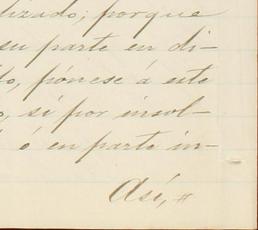 lizado; porque
su parte en di-
do, pónese á este
o, si por insol-
ó en parte in-
Así, #